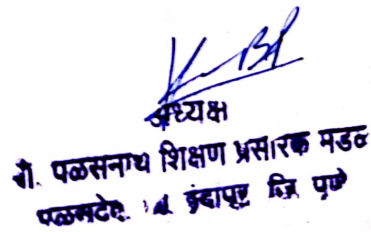 अध्यक्ष
श्री. पळसनाथ शिक्षण प्रसारक मंडळ
पळसदेव इंदापूर जि पुणे